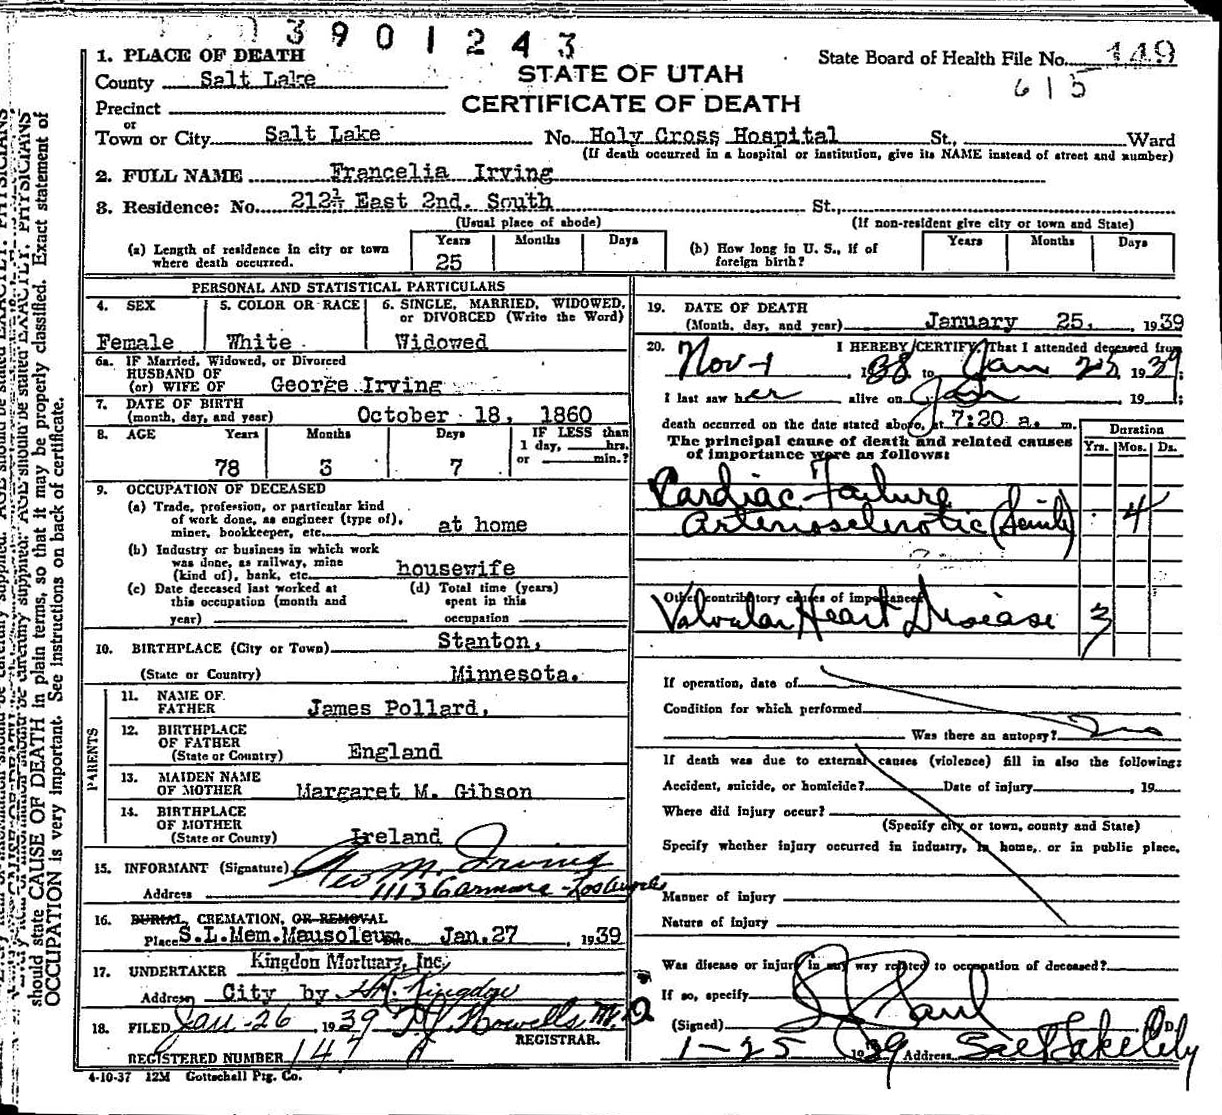 3901243
1. PLACE OF DEATH
State Board of Health File No. 149
County Salt Lake
STATE OF UTAH
615
Precinct
CERTIFICATE OF DEATH
or
Town or City Salt Lake No. Holy Cross Hospital St., Ward
(If death occurred in a hospital or institution, give its NAME instead of street and number)
2. FULL NAME Francelia Irving
3. Residence: No. 212½ East 2nd. South St.,
(Usual place of abode) (If non-resident give city or town and State)
(a) Length of residence in city or town where death occurred. Years 25 Months Days
(b) How long in U. S., if of foreign birth? Years Months Days
PERSONAL AND STATISTICAL PARTICULARS
4. SEX Female
5. COLOR OR RACE White
6. SINGLE, MARRIED, WIDOWED, or DIVORCED (Write the Word) Widowed
6a. IF Married, Widowed, or Divorced
HUSBAND OF
(or) WIFE OF George Irving
7. DATE OF BIRTH
(month, day, and year) October 18, 1860
8. AGE Years Months Days IF LESS than
1 day, hrs.
or min.?
78 3 7
9. OCCUPATION OF DECEASED
(a) Trade, profession, or particular kind
of work done, as engineer (type of),
miner, bookkeeper, etc. at home
(b) Industry or business in which work
was done, as railway, mine
(kind of), bank, etc. housewife
(c) Date deceased last worked at
this occupation (month and
year)
(d) Total time (years)
spent in this
occupation
10. BIRTHPLACE (City or Town) Stanton,
(State or Country) Minnesota.
PARENTS
11. NAME OF
FATHER James Pollard,
12. BIRTHPLACE
OF FATHER
(State or Country) England
13. MAIDEN NAME
OF MOTHER Margaret M. Gibson
14. BIRTHPLACE
OF MOTHER
(State or Country) Ireland
15. INFORMANT (Signature) Geo M. Irving
Address 1113 - Los Angeles
16. BURIAL, CREMATION, OR REMOVAL
Place S.L.Mem.Mausoleum Date Jan.27, 1939
17. UNDERTAKER Kingdon Mortuary, Inc.
Address City by Kingdon
18. FILED Jan-26, 1939 Howells M.D.
REGISTRAR.
REGISTERED NUMBER 147
4-10-37 12M Gottschall Ptg. Co.
19. DATE OF DEATH
(Month, day, and year) January 25, , 1939
20. I HEREBY CERTIFY, That I attended deceased from
Nov-1 1938 to Jan 25, 1939;
I last saw her alive on Jan , 19 ;
death occurred on the date stated above, at 7:20 a. m.
The principal cause of death and related causes
of importance were as follows:
Duration
Yrs. Mos. Ds.
Cardiac Failure
Arteriosclerotic (Senile) 4
Other contributory causes of importance:
Valvular Heart Disease 3
If operation, date of
Condition for which performed
Was there an autopsy? no
If death was due to external causes (violence) fill in also the following:
Accident, suicide, or homicide? Date of injury , 19
Where did injury occur?
(Specify city or town, county and State)
Specify whether injury occurred in industry, in home, or in public place.
Manner of injury
Nature of injury
Was disease or injury in any way related to occupation of deceased?
If so, specify
(Signed) Paul M.D.
1-25 1939 Address Salt Lake City
should state CAUSE OF DEATH in plain terms, so that it may be properly classified. Exact statement of
OCCUPATION is very important. See instructions on back of certificate.